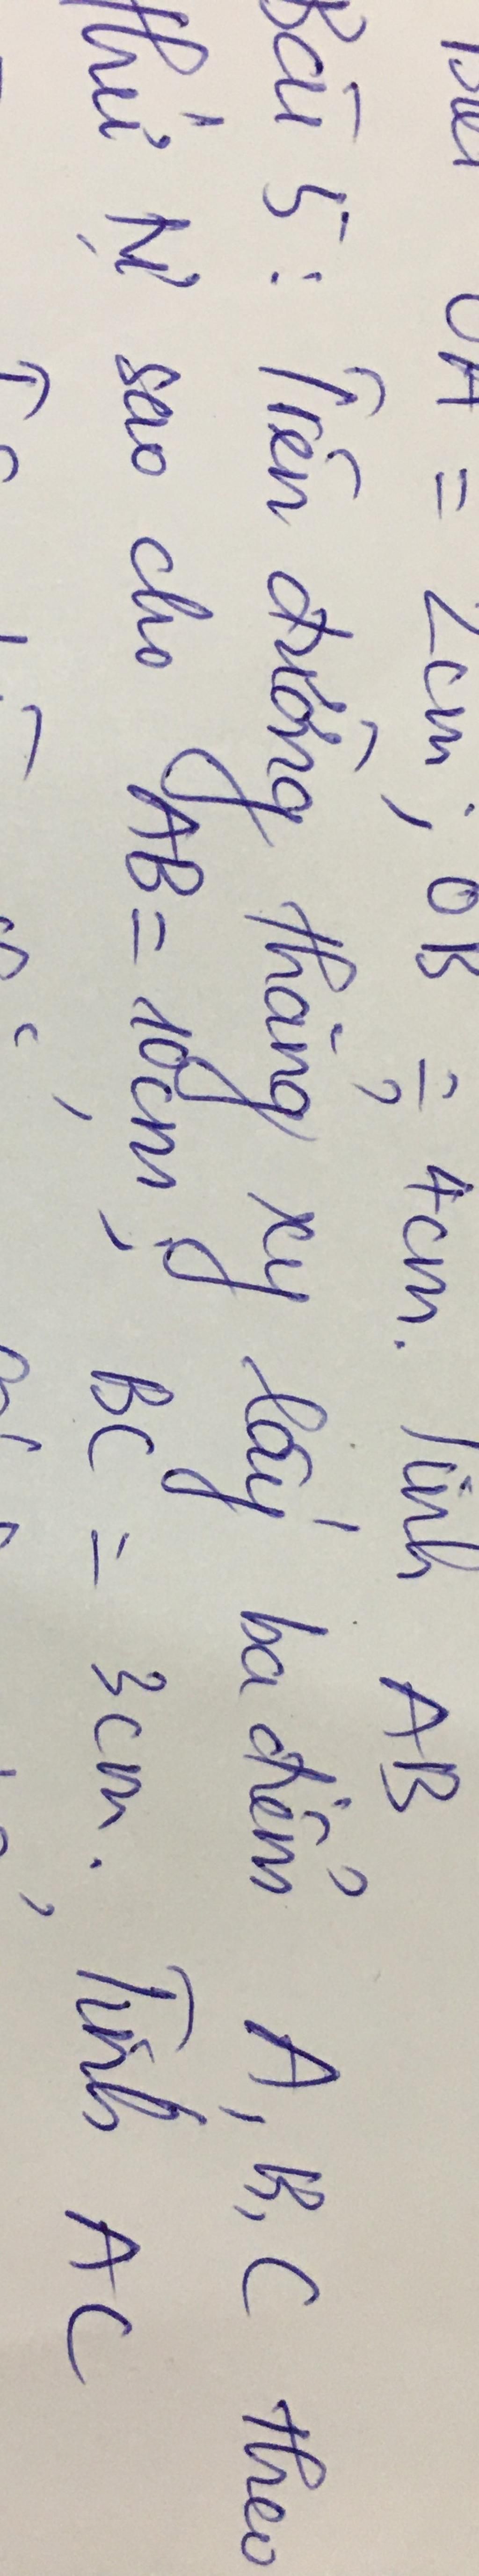 OA = 2cm; OB = 4cm. Tính AB
Bài 5: Trên đường thẳng xy lấy ba điểm A, B, C theo
thứ tự sao cho AB = 10cm; BC = 3cm. Tính AC